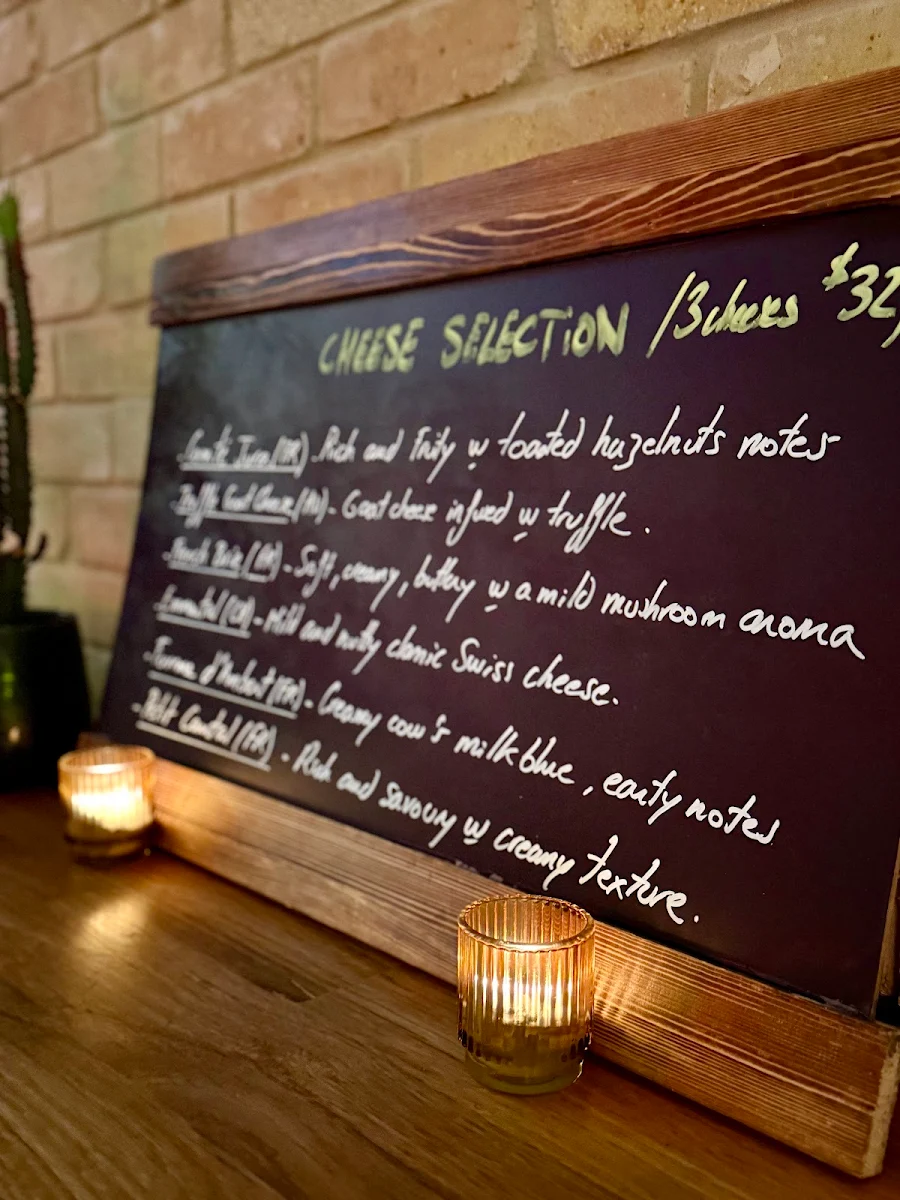 CHEESE SELECTION /3 cheeses $32
- Comté Jura (FR) - Rich and Fruity w toasted hazelnuts notes
- Truffle Goat Cheese - Goat cheese infused w truffle.
- French Brie (FR) - Soft, creamy, buttery w a mild mushroom aroma
- Emmental (CH) - Mild and nutty classic Swiss cheese.
- d'Ambert (FR) - Creamy cow's milk blue, earty notes
- Petit Cantal (FR) - Rich and savoury w creamy texture.